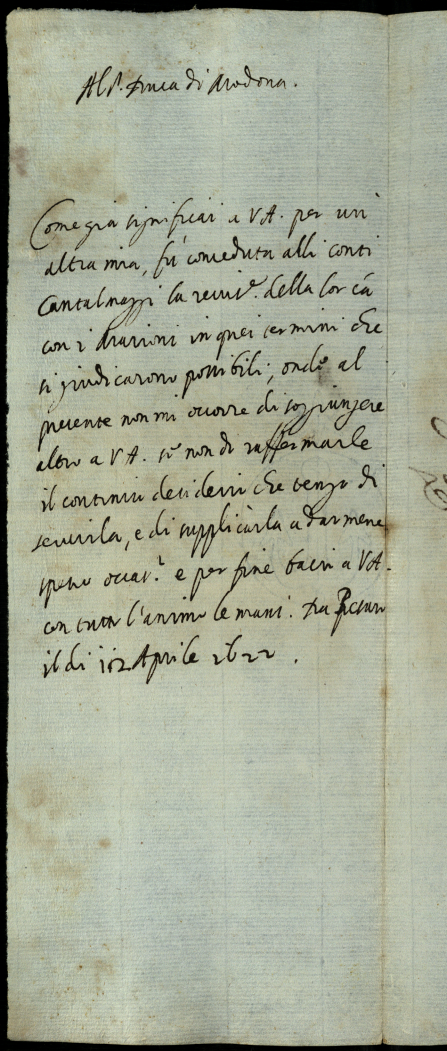 Al S. Duca di Modona.
Come già significai a V A. per un'
altra mia, fù conceduta alli Conti
Cantalmaggi la revis.e della lor cã
con i Marioni in quei termini che
si giudicarono possibili, onde al
presente non mi occorre di soggiungere
altro a V A. se non di raffermarle
il continuo desiderio che tengo di
servirla, e di supplicarla a darmene
spesso occas.i e per fine bacio a V A.
con tutto l'animo le mani. Da
il di Aprile 1622.